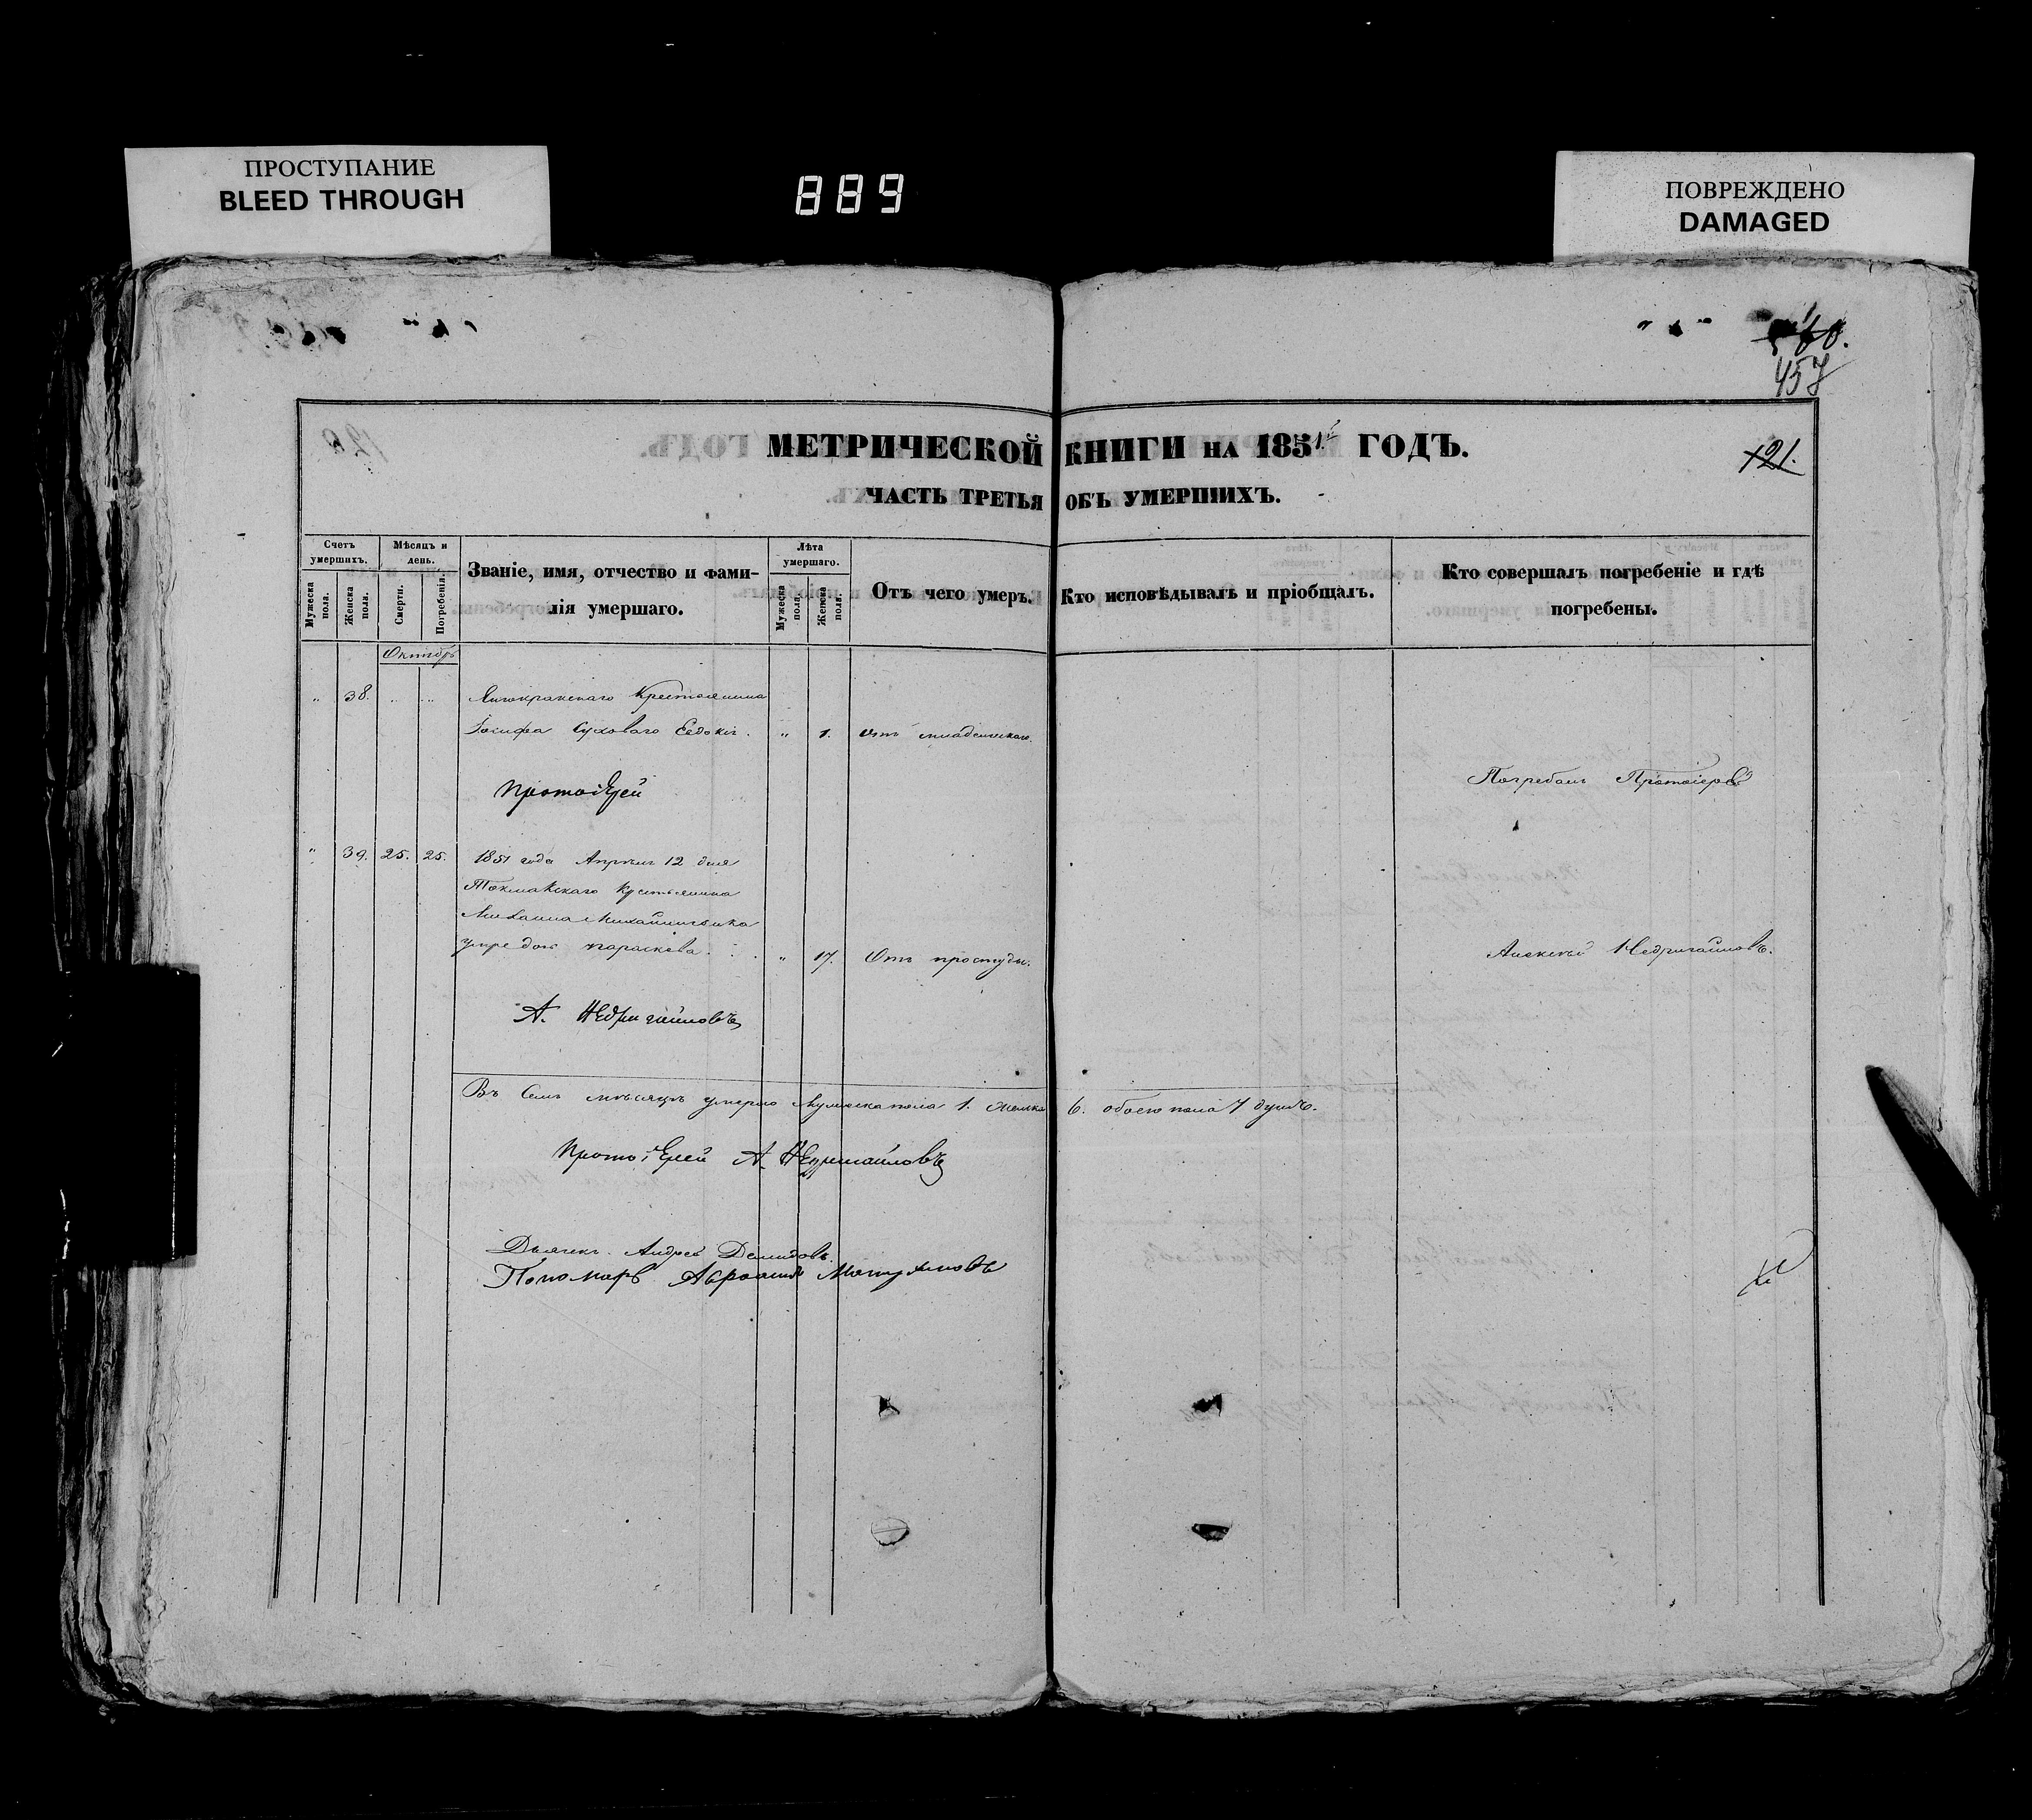 ПРОСТУПАНИЕ
BLEED THROUGH
889
ПОВРЕЖДЕНО
DAMAGED
457
МЕТРИЧЕСКОЙ КНИГИ НА 1851 ГОДЪ.
121.
ЧАСТЬ ТРЕТЬЯ ОБЪ УМЕРШИХЪ.
Счетъ умершихъ.
Мужеска пола.
Женска пола.
Мѣсяцъ и день.
Смерти.
Погребенія.
Званіе, имя, отчество и фамилія умершаго.
Лѣта умершаго.
Мужеска пола.
Женска пола.
Отъ чего умеръ.
Кто исповѣдывалъ и пріобщалъ.
Кто совершалъ погребеніе и гдѣ погребены.
Октябрь
„ 38. „ „ Крестьянина
Іосифа Суховаго Евдокія. „ 1. Отъ младенческаго.
Протоіерей
Погребалъ Протоіерей
„ 39. 25. 25. 1851 года Апрѣля 12 дня
Токмакскаго Крестьянина
Михаила
дочь параскева. „ 17. Отъ простуды.
Алексѣй Недригайловъ.
А. Недригайловъ
Въ Семъ мѣсяцѣ умерло Мужеска пола 1. Женска 6. обоего пола 7 душъ.
Протоіерей А. Недригайловъ
Дьячекъ Андрей Демидовъ
Пономарь